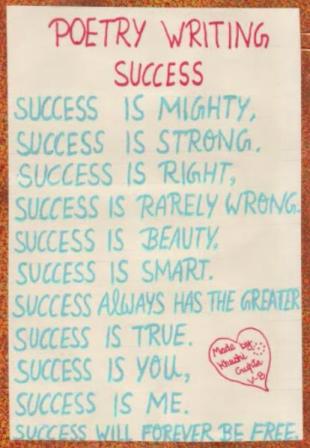 POETRY WRITING
SUCCESS
SUCCESS IS MIGHTY,
SUCCESS IS STRONG.
SUCCESS IS RIGHT,
SUCCESS IS RARELY WRONG.
SUCCESS IS BEAUTY,
SUCCESS IS SMART.
SUCCESS ALWAYS HAS THE GREATER
SUCCESS IS TRUE.
SUCCESS IS YOU,
SUCCESS IS ME.
SUCCESS WILL FOREVER BE FREE.
Made by
Khushi
Gupta
V-B